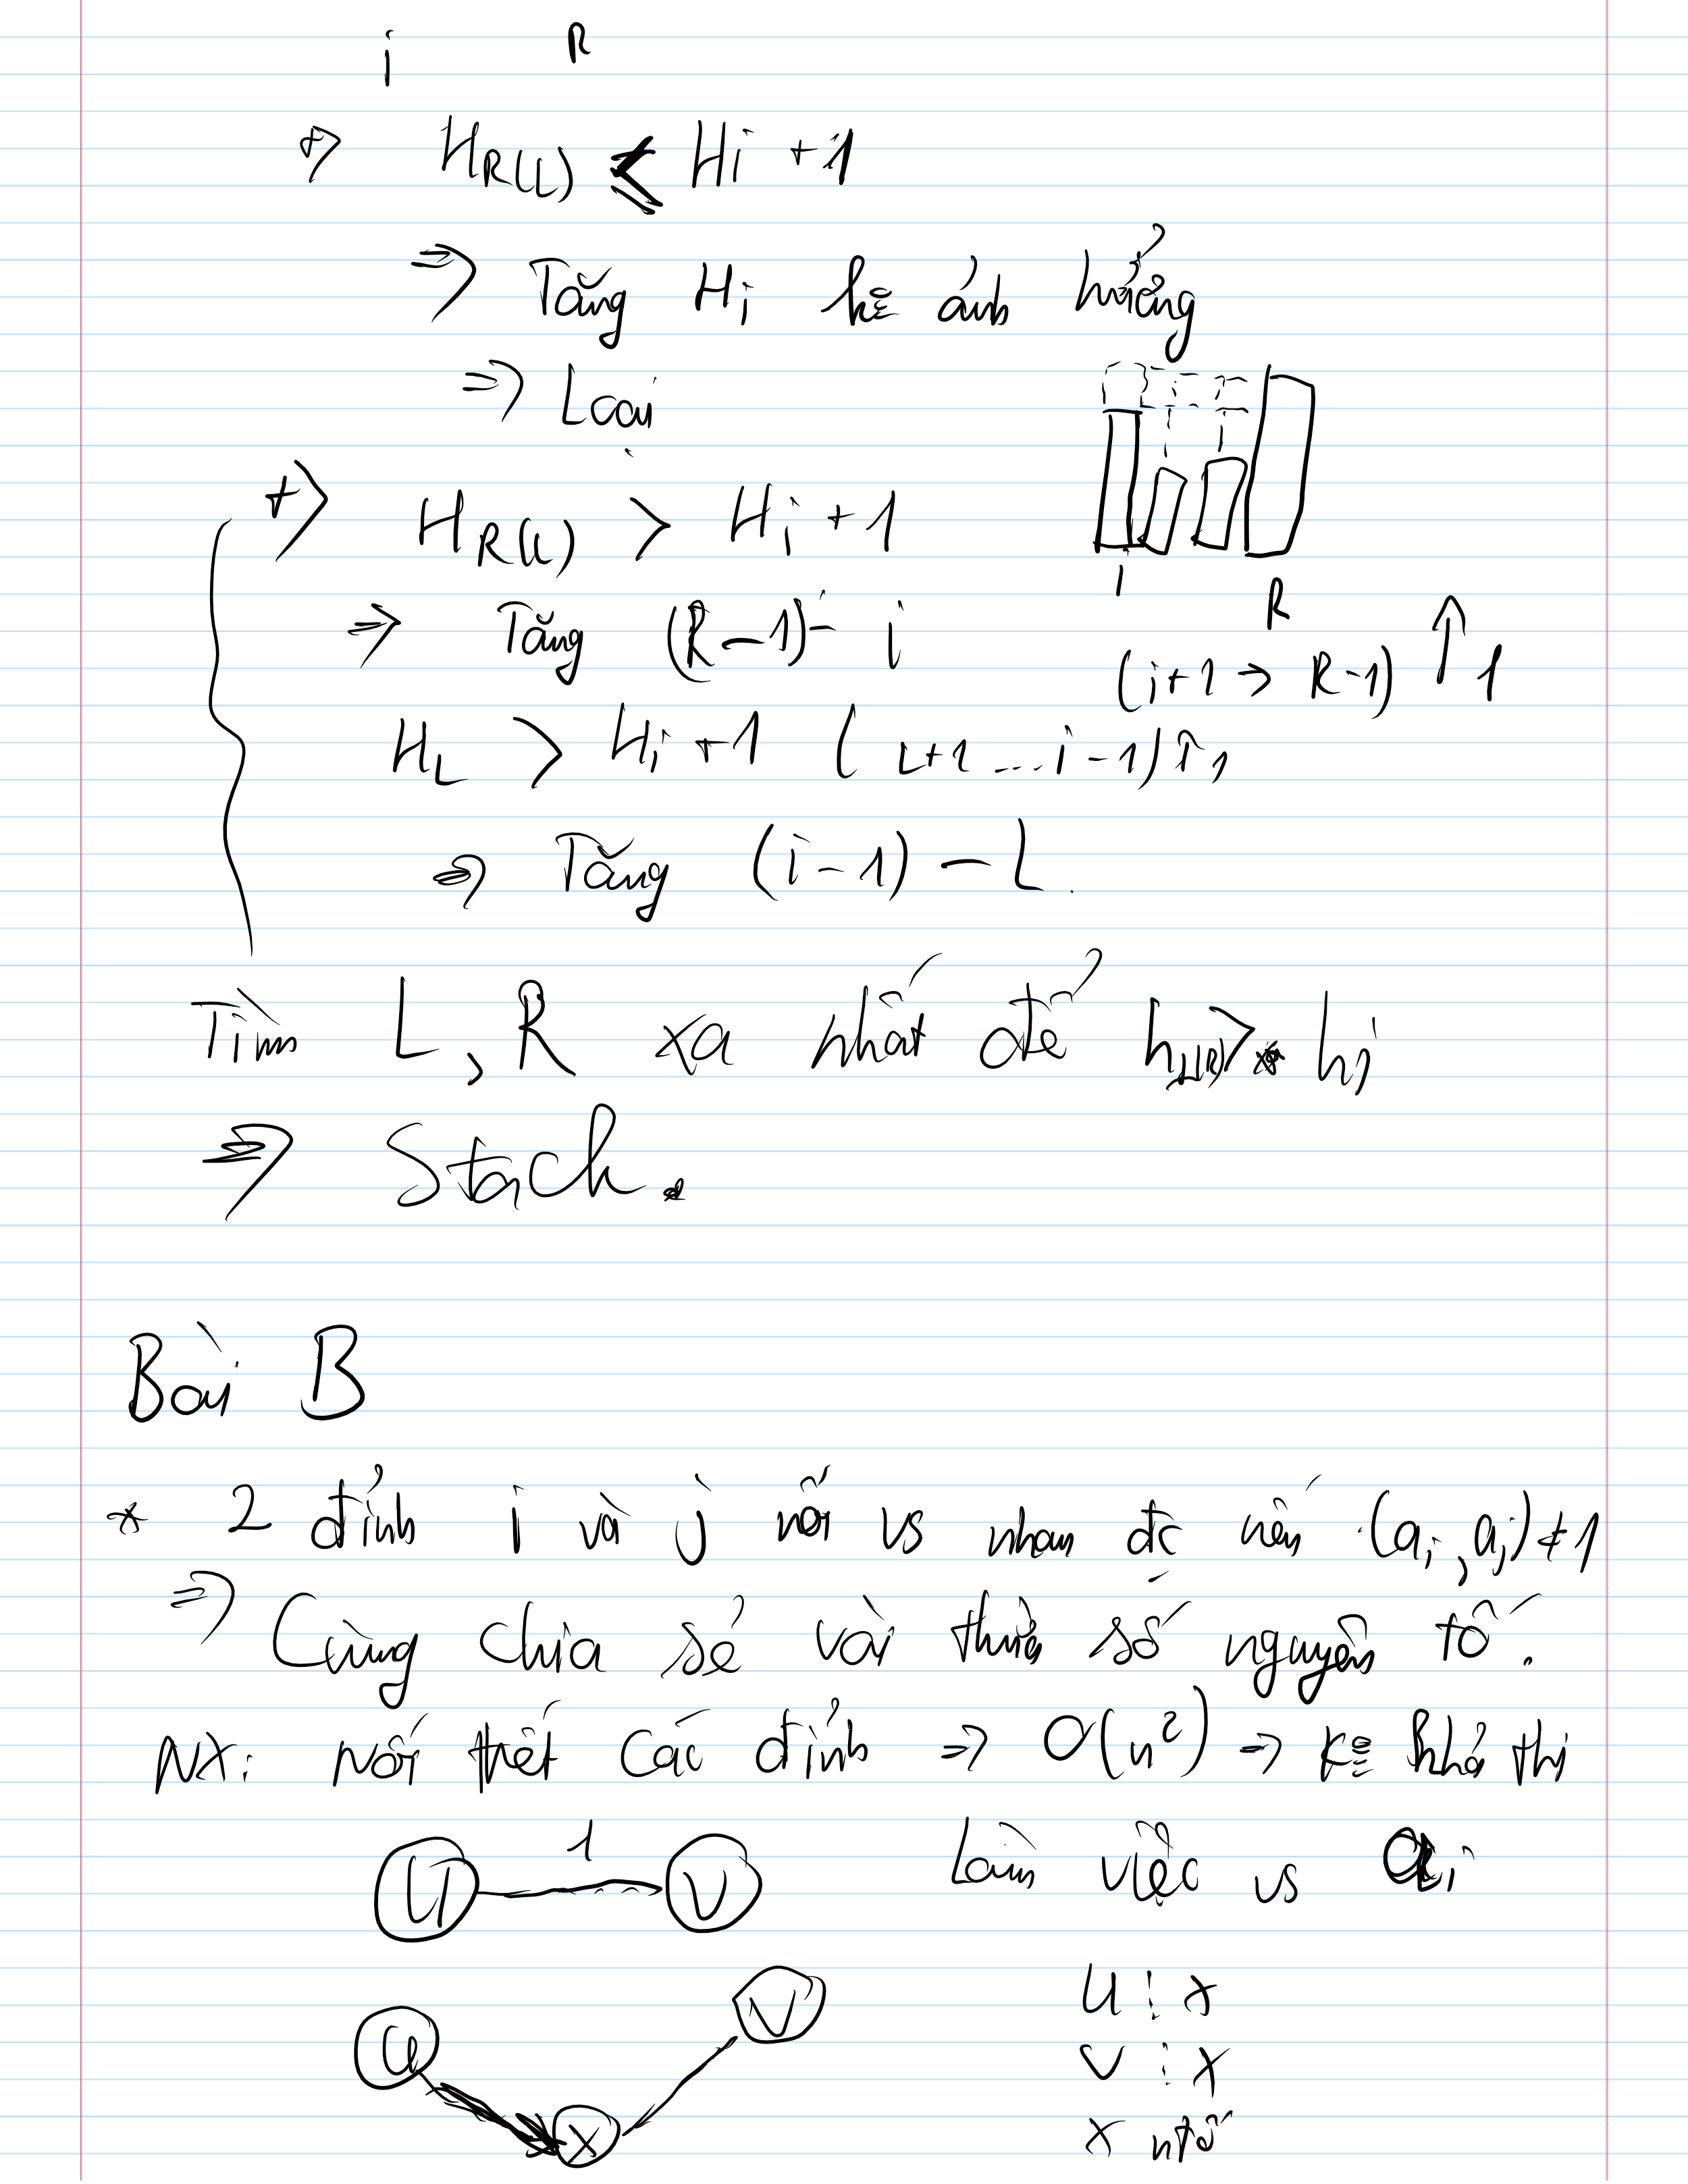 i R
+> H_R(L) ≤ Hi +1
=> Tăng Hi kº ảnh hưởng
=> Loại
+> H_R(L) > Hi +1
i R
=> Tăng (R-1) - i
(i+1 → R-1) ↑ 1
H_L > Hi +1 (L+1 ... i-1) ↑ 1
=> Tăng (i-1) - L
Tìm L, R xa nhất để h_L(R) > hi
=> Stack.
Bài B
* 2 đỉnh i và j nối vs nhau đc nếu (ai, aj) ≠ 1
=> Cùng chia sẻ vài thừa số nguyên tố.
NX: nối hết các đỉnh => O(n²) => kº khả thi
U 1 V Làm việc vs ai
U V X
U ⋮ x
V ⋮ x
x ntố